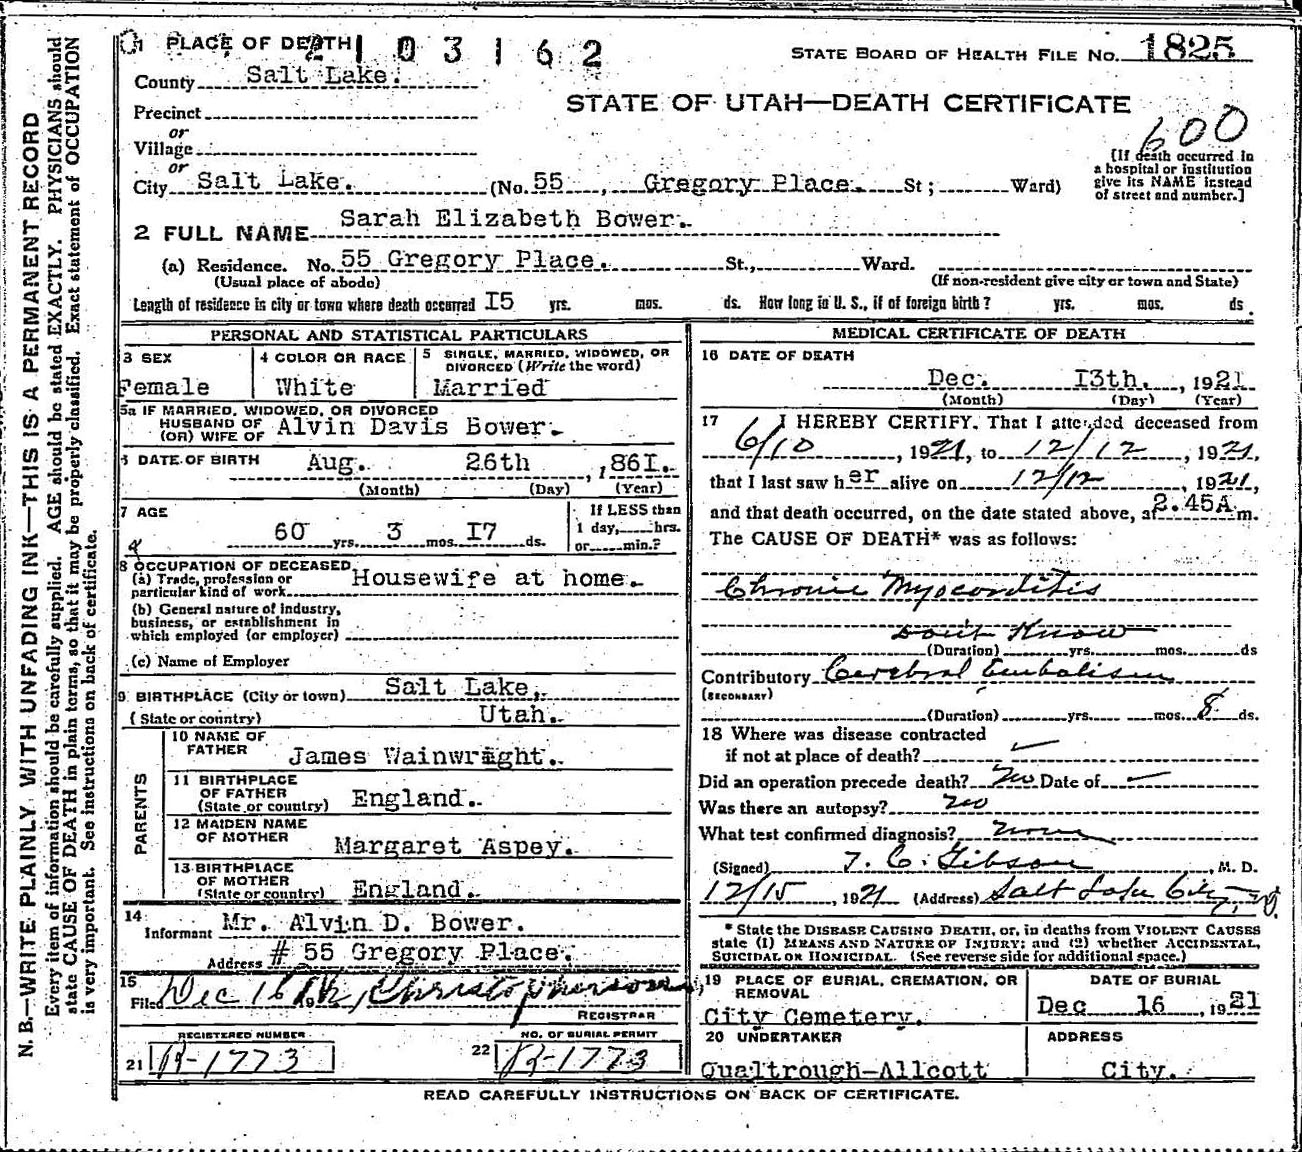 1 PLACE OF DEATH 2103162
STATE BOARD OF HEALTH FILE No. 1825
County Salt Lake.
STATE OF UTAH—DEATH CERTIFICATE
Precinct
600
or
Village
or
[If death occurred in
a hospital or institution
give its NAME instead
of street and number.]
City Salt Lake. (No. 55, Gregory Place. St; Ward)
2 FULL NAME Sarah Elizabeth Bower.
(a) Residence. No. 55 Gregory Place. St., Ward.
(Usual place of abode) (If non-resident give city or town and State)
Length of residence in city or town where death occurred I5 yrs. mos. ds. How long in U. S., if of foreign birth? yrs. mos. ds.
PERSONAL AND STATISTICAL PARTICULARS
3 SEX
Female
4 COLOR OR RACE
White
5 SINGLE, MARRIED, WIDOWED, OR
DIVORCED (Write the word)
Married
5a IF MARRIED, WIDOWED, OR DIVORCED
HUSBAND OF
(OR) WIFE OF Alvin Davis Bower.
6 DATE OF BIRTH Aug. 26th, 186I.
(Month) (Day) (Year)
7 AGE
60 yrs. 3 mos. I7 ds.
If LESS than
1 day, hrs.
or min.?
8 OCCUPATION OF DECEASED
(a) Trade, profession or
particular kind of work Housewife at home.
(b) General nature of industry,
business, or establishment in
which employed (or employer)
(c) Name of Employer
9 BIRTHPLACE (City or town) Salt Lake,
(State or country) Utah.
PARENTS
10 NAME OF
FATHER James Wainwright.
11 BIRTHPLACE
OF FATHER
(State or country) England.
12 MAIDEN NAME
OF MOTHER Margaret Aspey.
13 BIRTHPLACE
OF MOTHER
(State or country) England.
14
Informant Mr. Alvin D. Bower.
Address # 55 Gregory Place.
15
Filed Dec 16 19
REGISTRAR
REGISTERED NUMBER
21 B-1773
NO. OF BURIAL PERMIT
22 B-1773
MEDICAL CERTIFICATE OF DEATH
16 DATE OF DEATH
Dec. I3th., 1921
(Month) (Day) (Year)
17 I HEREBY CERTIFY, That I attended deceased from
6/10, 1921, to 12/12, 1921,
that I last saw her alive on 12/12, 1921,
and that death occurred, on the date stated above, at 2.45A m.
The CAUSE OF DEATH* was as follows:
Chronic Myocorditis
Dont Know
(Duration) yrs. mos. ds
Contributory Cerebral Embolism
(SECONDARY)
(Duration) yrs. mos. 8 ds.
18 Where was disease contracted
if not at place of death?
Did an operation precede death? No Date of
Was there an autopsy? No
What test confirmed diagnosis? None
(Signed) T. C. Gibson, M. D.
12/15, 1921 (Address) Salt Lake City,
* State the DISEASE CAUSING DEATH, or, in deaths from VIOLENT CAUSES
state (1) MEANS AND NATURE OF INJURY; and (2) whether ACCIDENTAL,
SUICIDAL OR HOMICIDAL. (See reverse side for additional space.)
19 PLACE OF BURIAL, CREMATION, OR
REMOVAL
City Cemetery.
DATE OF BURIAL
Dec 16, 1921
20 UNDERTAKER
Qualtrough-Allcott
ADDRESS
City.
READ CAREFULLY INSTRUCTIONS ON BACK OF CERTIFICATE.
N. B.—WRITE PLAINLY, WITH UNFADING INK—THIS IS A PERMANENT RECORD
Every item of information should be carefully supplied. AGE should be stated EXACTLY. PHYSICIANS should
state CAUSE OF DEATH in plain terms, so that it may be properly classified. Exact statement of OCCUPATION
is very important. See instructions on back of certificate.